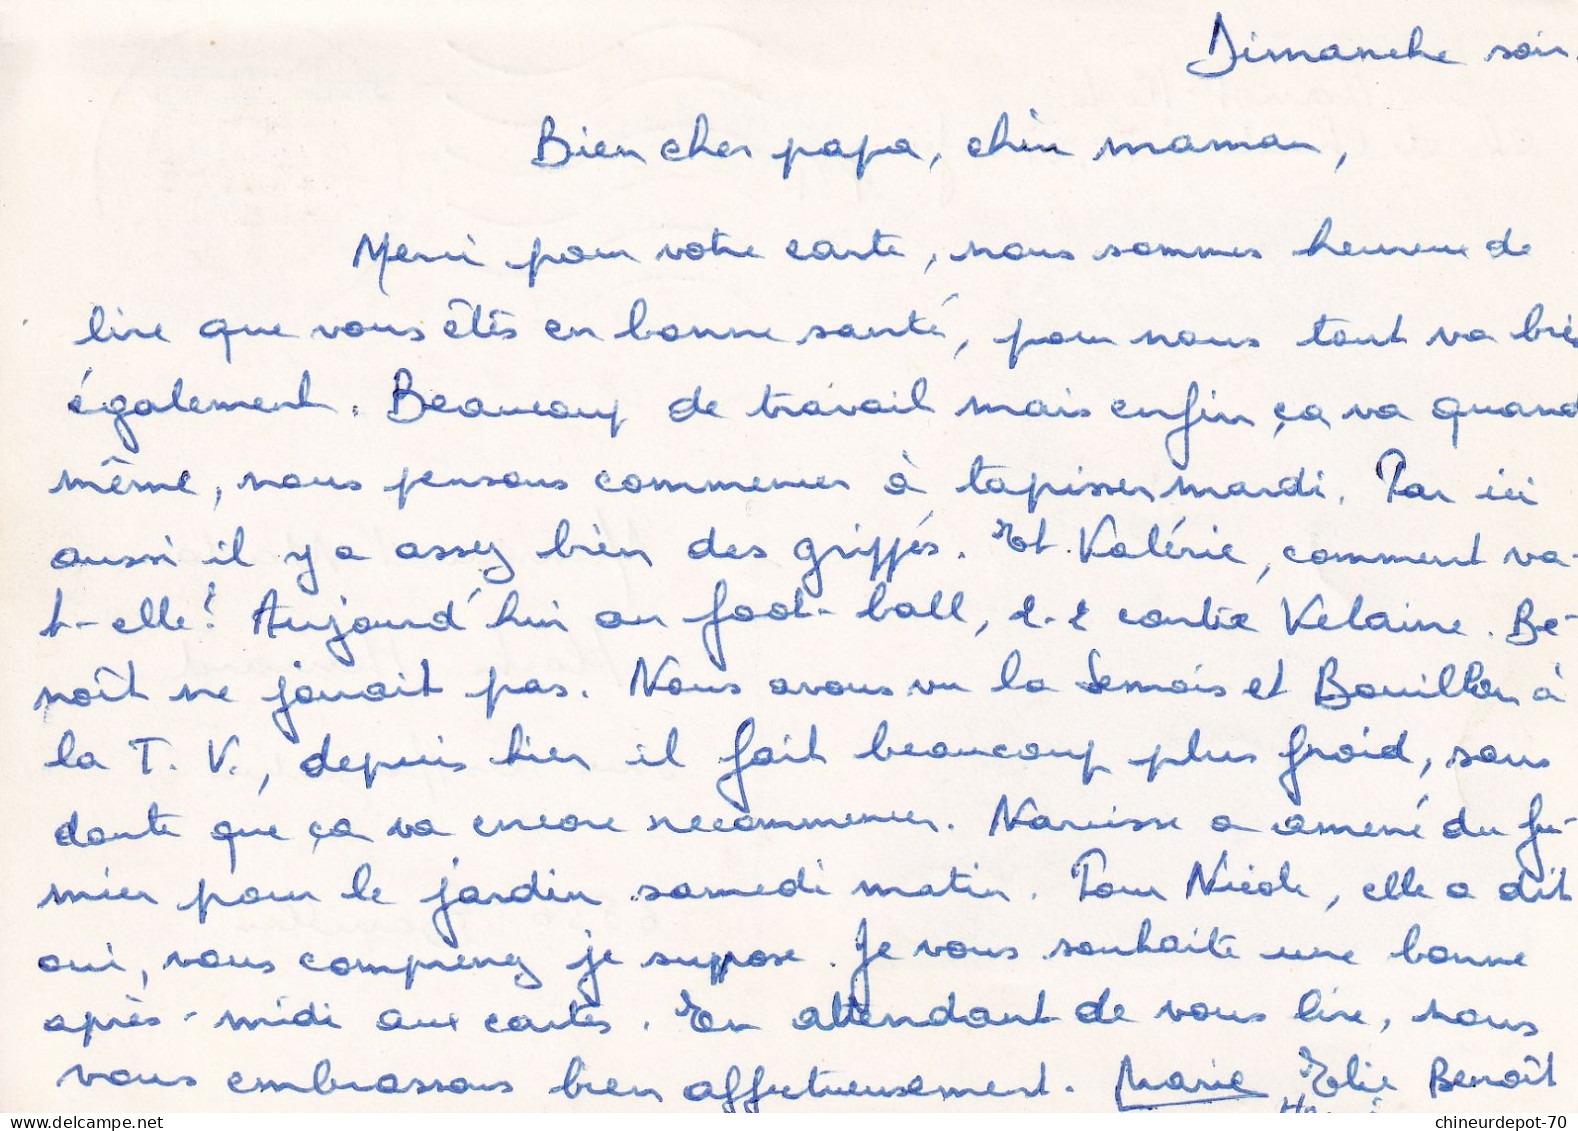 Dimanche soir.
Bien cher papa, chère maman,
Merci pour votre carte, nous sommes heureux de
lire que vous êtes en bonne santé, pour nous tout va bien
également. Beaucoup de travail mais enfin ça va quand
même, nous pensons commencer à tapisser mardi. Par ici
aussi il y a assez bien des grippés. Et Valérie, comment va-
t-elle? Aujourd'hui au foot-ball, 2-2 contre Velaine. Be-
noît ne jouait pas. Nous avons vu la Semois et Bouillon à
la T.V., depuis hier il fait beaucoup plus froid, sans
doute que ça va encore recommencer. Narcisse a amené du fu-
mier pour le jardin samedi matin. Pour Nicole, elle a dit
oui, vous comprenez je suppose. Je vous souhaite une bonne
après-midi aux cartes. En attendant de vous lire, nous
vous embrassons bien affectueusement. Marie Elie Benoît
chineurdepot-70
delcampe.net